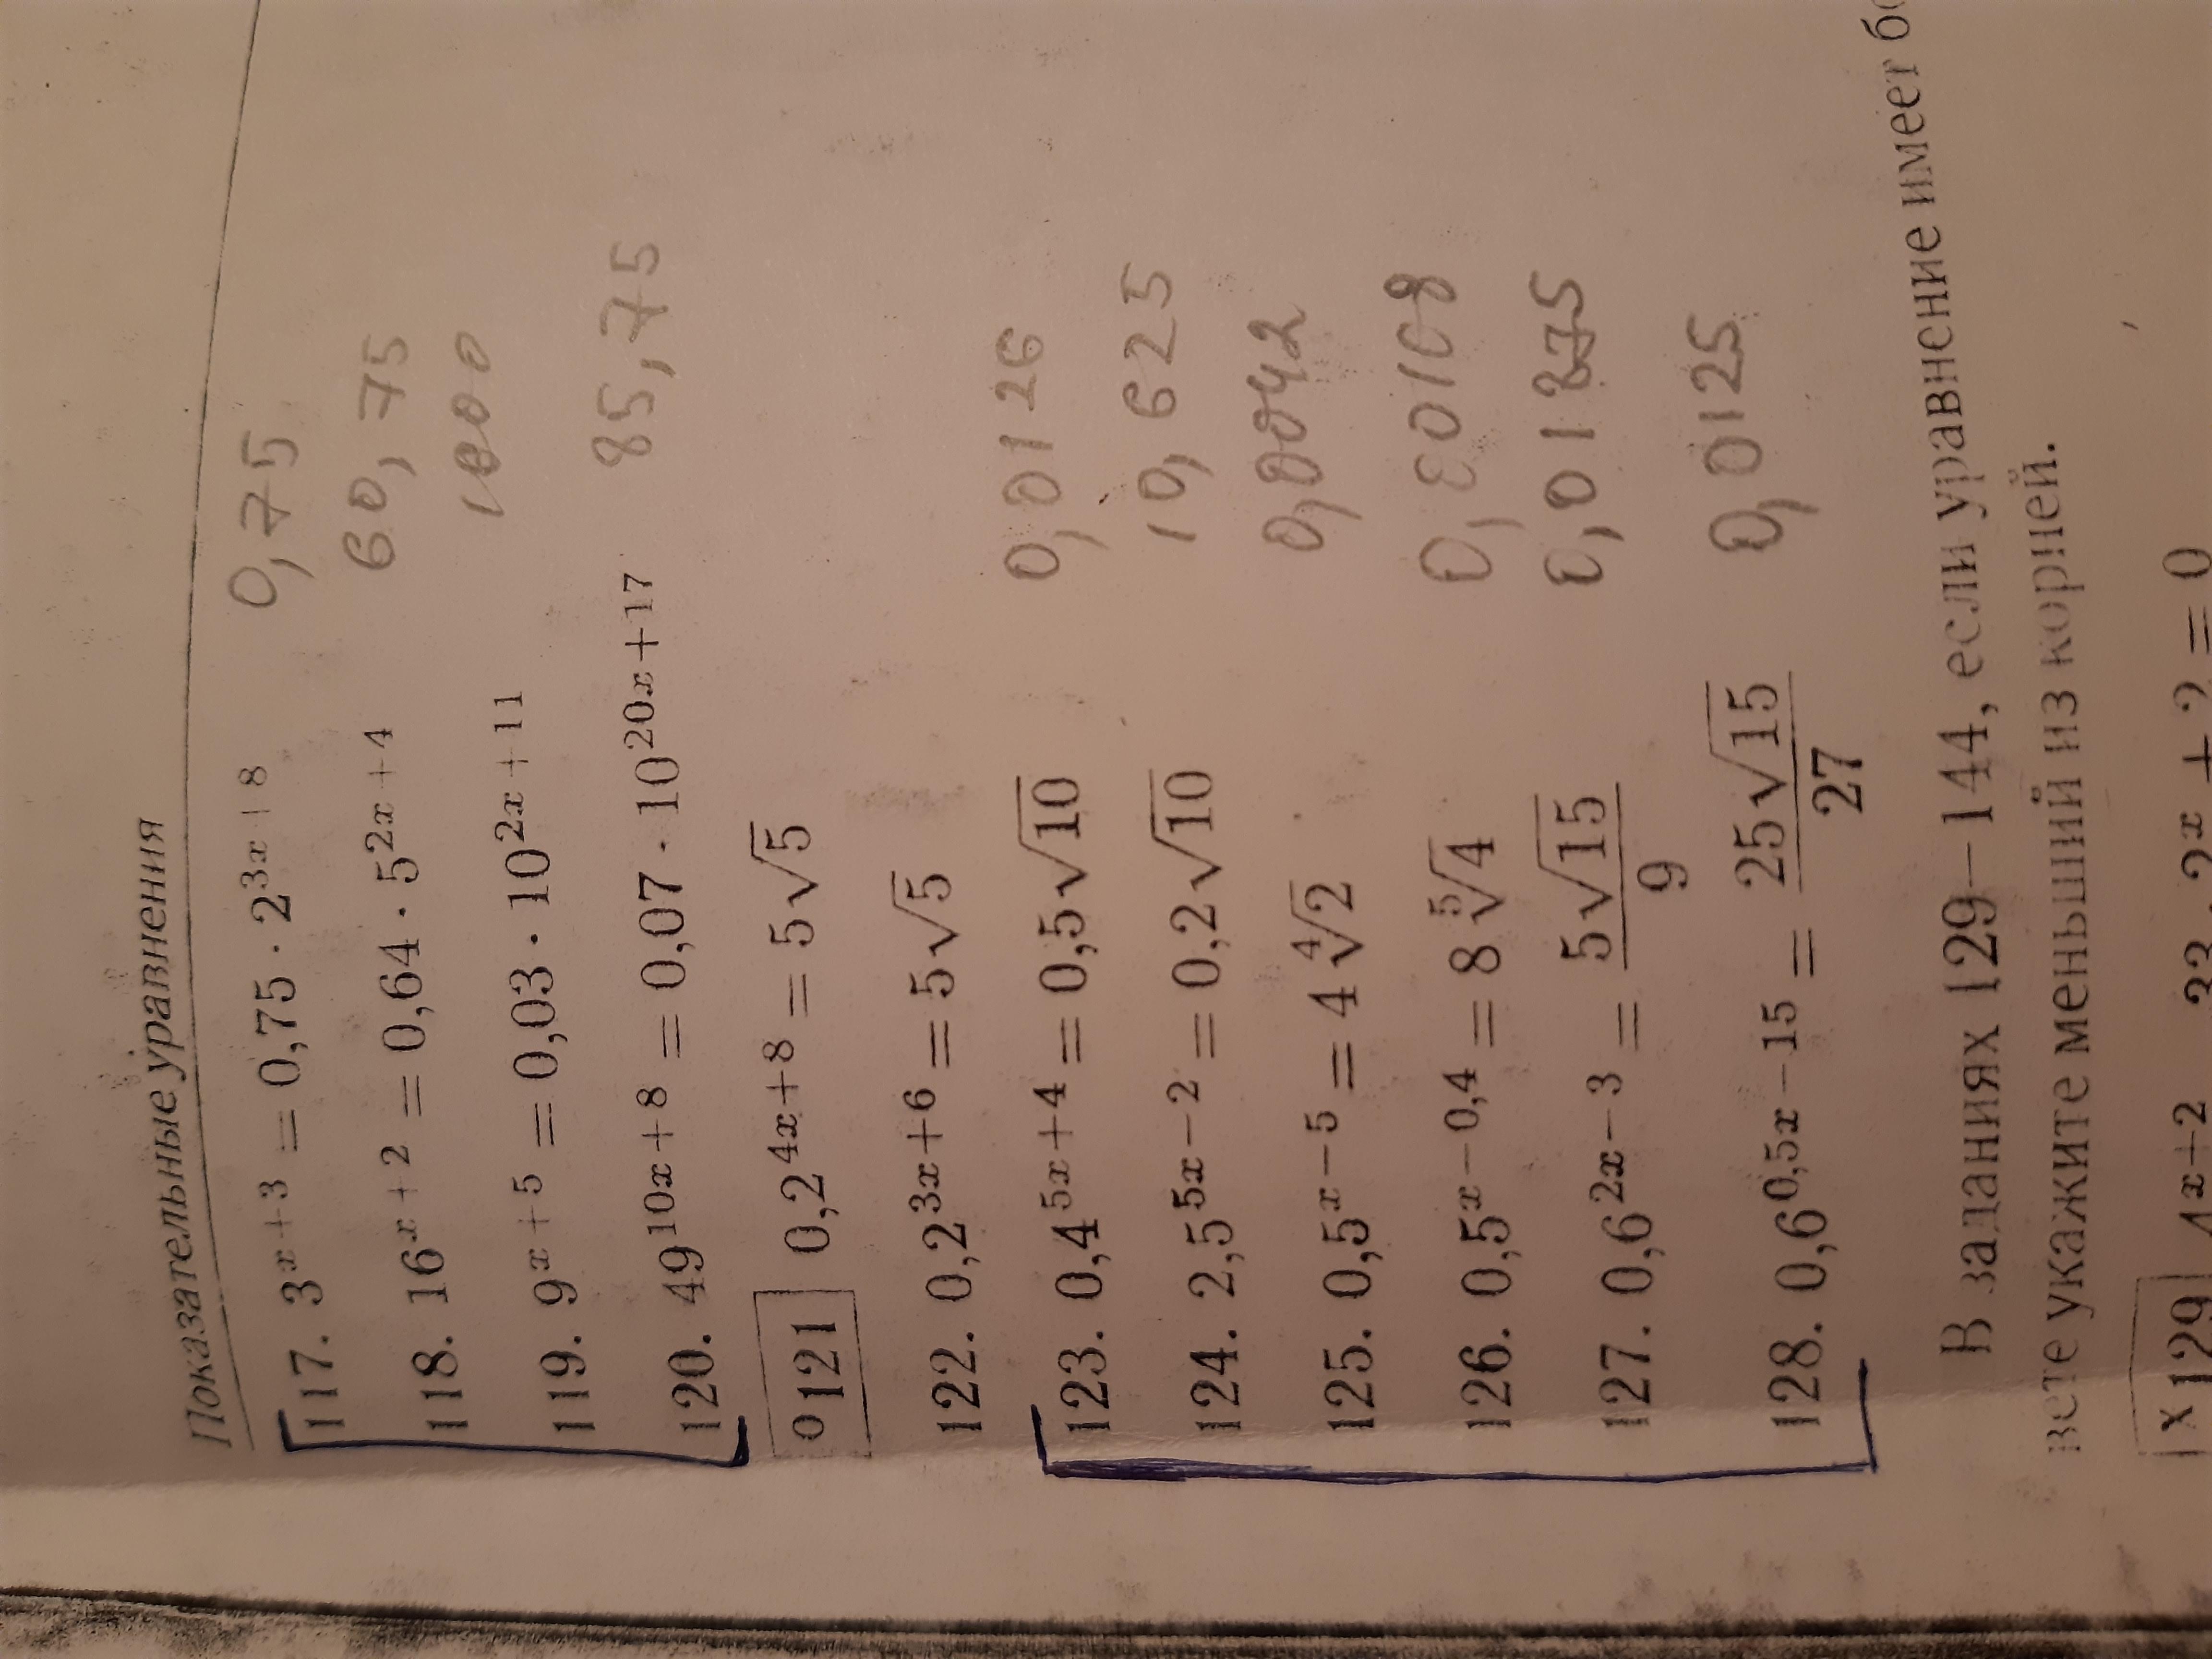 Показательные уравнения
117. 3^{x+3} = 0,75 · 2^{3x+8} 0,75
118. 16^{x+2} = 0,64 · 5^{2x+4} 60,75
119. 9^{x+5} = 0,03 · 10^{2x+11} 1000
120. 49^{10x+8} = 0,07 · 10^{20x+17} 85,75
°121 0,2^{4x+8} = 5√5
122. 0,2^{3x+6} = 5√5
123. 0,4^{5x+4} = 0,5√10 0,0126
124. 2,5^{5x−2} = 0,2√10 10,625
125. 0,5^{x−5} = 4∜2 0,0042
126. 0,5^{x−0,4} = 8⁵√4 0,00108
127. 0,6^{2x−3} = 5√15/9 0,01875
128. 0,6^{0,5x−15} = 25√15/27 0,0125
В заданиях 129—144, если уравнение имеет
вете укажите меньший из корней.
x 129 4^{x+2} 33 · 2^x + 2 = 0